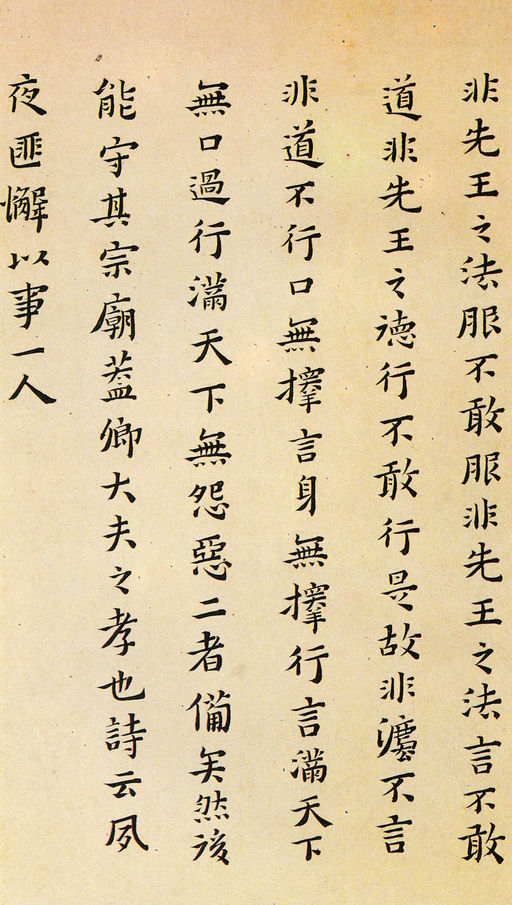 非先王之法服不敢服非先王之法言不敢
道非先王之徳行不敢行是故非灋不言
非道不行口無擇言身無擇行言滿天下
無口過行滿天下無怨惡二者備矣然後
能守其宗廟蓋卿大夫之孝也詩云夙
夜匪懈以事一人